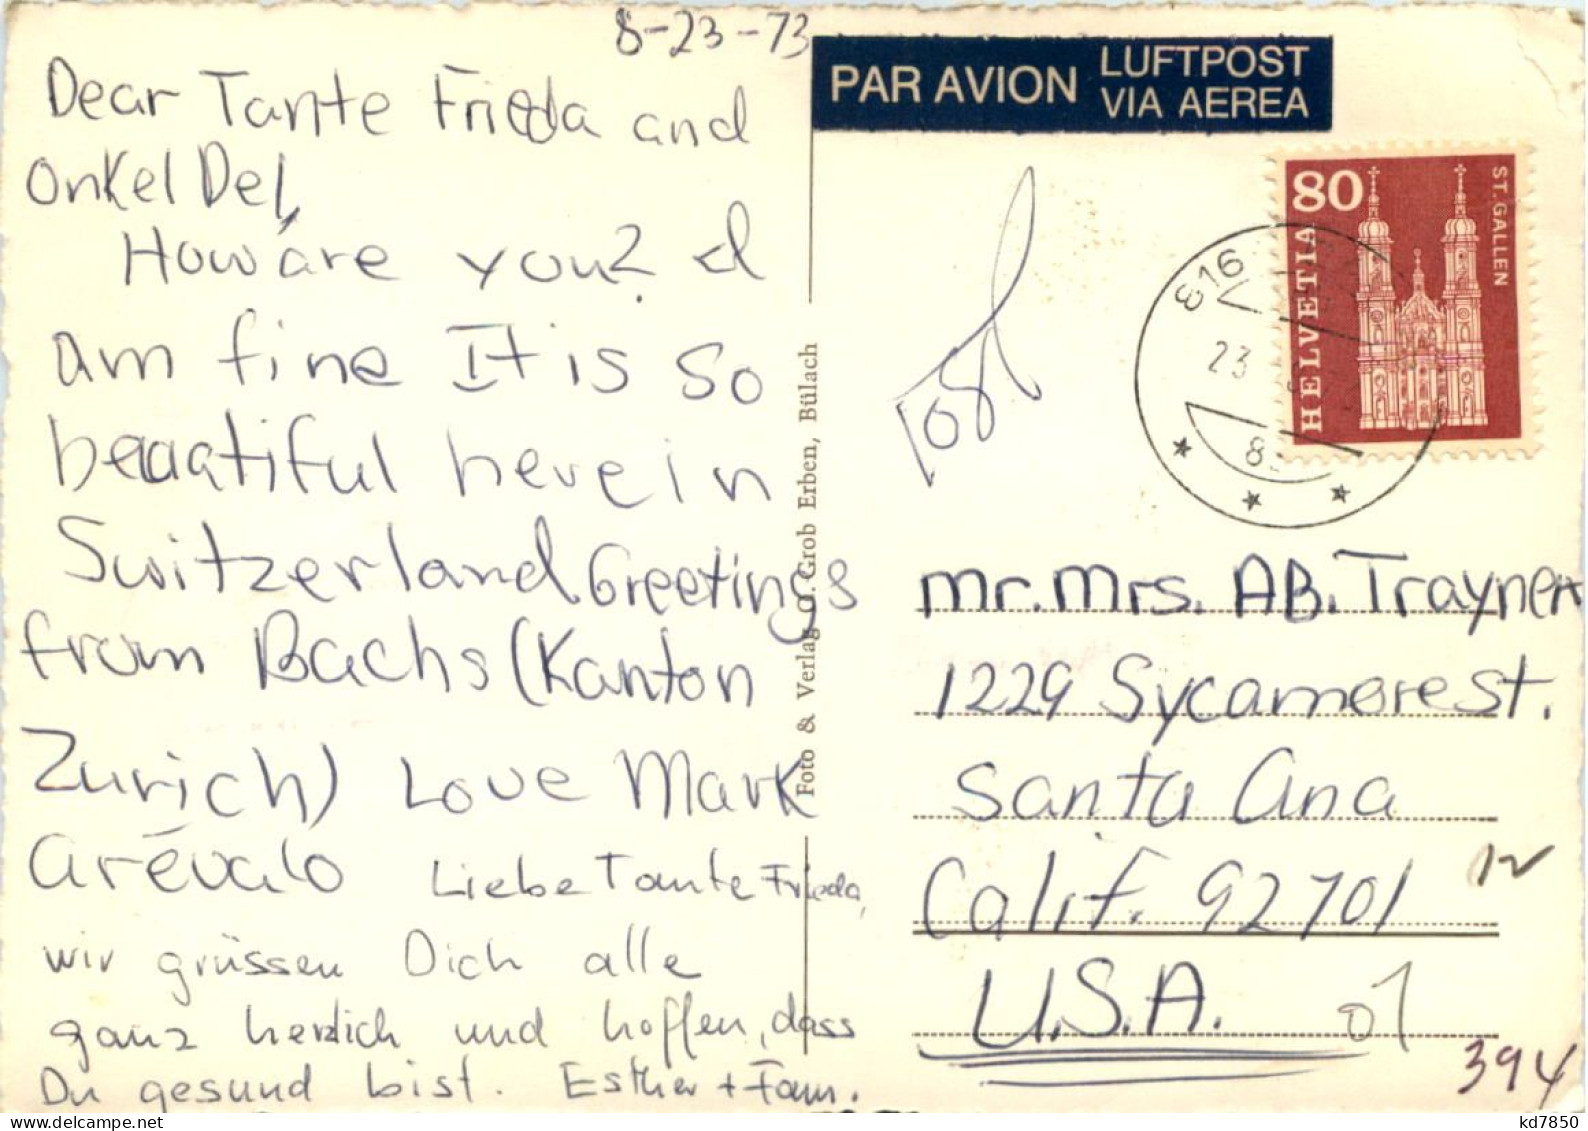 8-23-73
Dear Tante Frieda and
Onkel Del,
How are you? I
am fine It is so
beautiful here in
Switzerland Greetings
from Bachs (Kanton
Zurich) Love Mark
Arévalo Liebe Tante Frieda,
wir grüssen Dich alle
ganz herzlich und hoffen, dass
Du gesund bist. Esther + Fam.
Foto & Verlag O. Grob Erben, Bülach
PAR AVION
LUFTPOST
VIA AEREA
80
HELVETIA
ST. GALLEN
816
23
8
Mr. Mrs. AB. Trayner
1229 Sycamore St.
Santa Ana
Calif. 92701
U.S.A.
01
394
kd7850